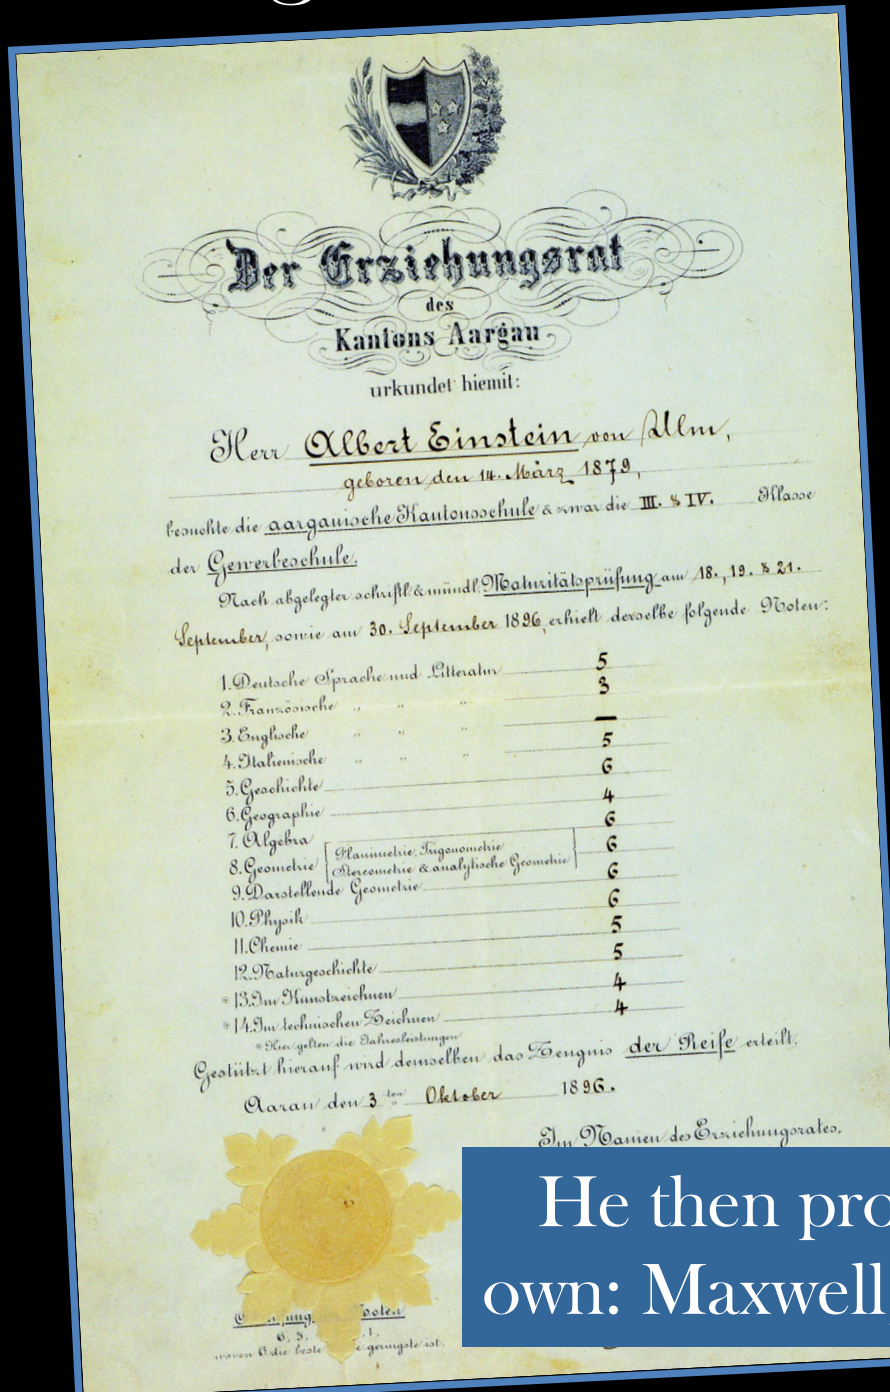 Der Erziehungsrat
des
Kantons Aargau
urkundet hiemit:
Herr Albert Einstein von Ulm,
geboren den 14. März 1879,
besuchte die aargauische Kantonsschule & zwar die III. & IV. Klasse
der Gewerbeschule.
Nach abgelegter schriftl. & mündl. Maturitätsprüfung am 18., 19. & 21.
September, sowie am 30. September 1896, erhielt derselbe folgende Noten:
1. Deutsche Sprache und Litteratur 5
2. Französische " " " 3
3. Englische " " " —
4. Italienische " " " 5
5. Geschichte 6
6. Geographie 4
7. Algebra 6
8. Geometrie { Planimetrie, Trigonometrie 6
Stereometrie & analytische Geometrie }
9. Darstellende Geometrie 6
10. Physik 6
11. Chemie 5
12. Naturgeschichte 5
* 13. Im Kunstzeichnen 4
* 14. Im technischen Zeichnen 4
* Hier gelten die Jahresleistungen
Gestützt hierauf wird demselben das Zeugnis der Reife erteilt.
Aarau den 3ten Oktober 1896.
Im Namen des Erziehungsrates,
He then pro
own: Maxwell,
Noten
6, 5, 1.
wovon 6 die beste geringste ist.